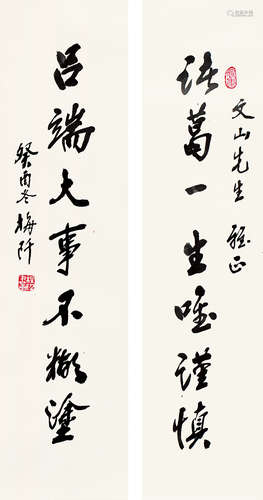 文山先生 雅正
诸葛一生唯谨慎
吕端大事不糊塗
癸酉冬 梅阡